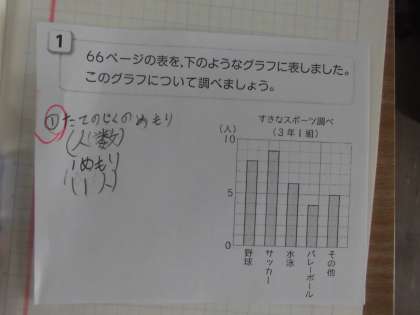 1
66ページの表を,下のようなグラフに表しました。
このグラフについて調べましょう。
①たてのじくのめもり
(人数)
1めもり
(1人)
すきなスポーツ調べ
(3年1組)
(人)
10
5
0
野球
サッカー
水泳
バレーボール
その他